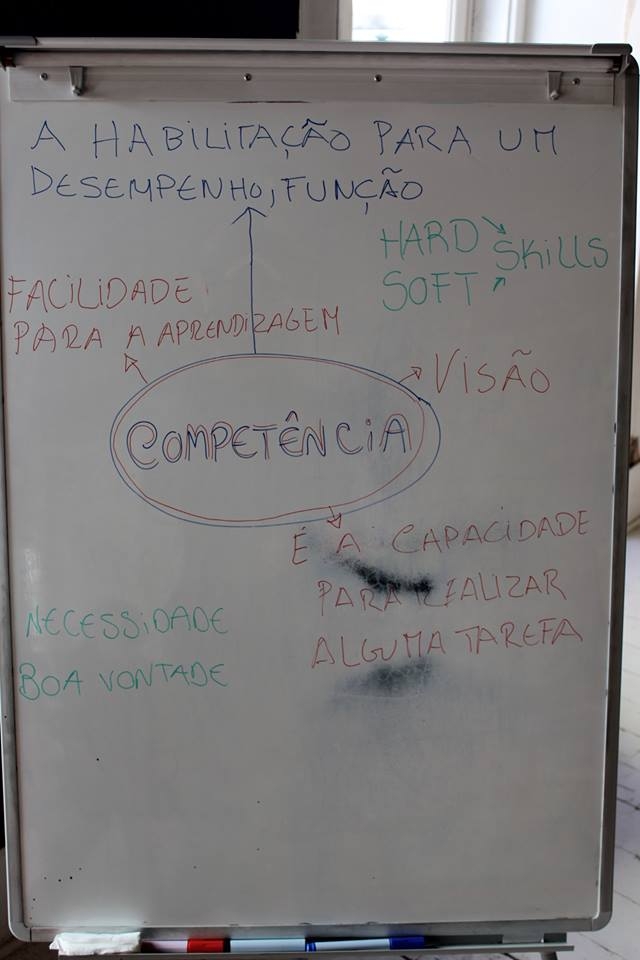 A HABILITAÇÃO PARA UM
DESEMPENHO, FUNÇÃO
HARD
SOFT
SKILLS
FACILIDADE
PARA A APRENDIZAGEM
VISÃO
COMPETÊNCIA
É A CAPACIDADE
PARA REALIZAR
ALGUMA TAREFA
NECESSIDADE
BOA VONTADE